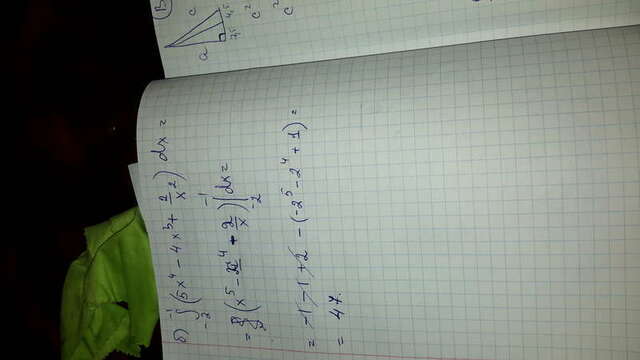 б) ∫₋₂⁻¹ (5x⁴ - 4x³ + 2/x²) dx =
= (x⁵ - x⁴ + 2/x) |₋₂⁻¹ dx =
= -1 - 1 + 2 - (-2⁵ - 2⁴ + 1) =
= 47.
B)
c
a
c²
c²